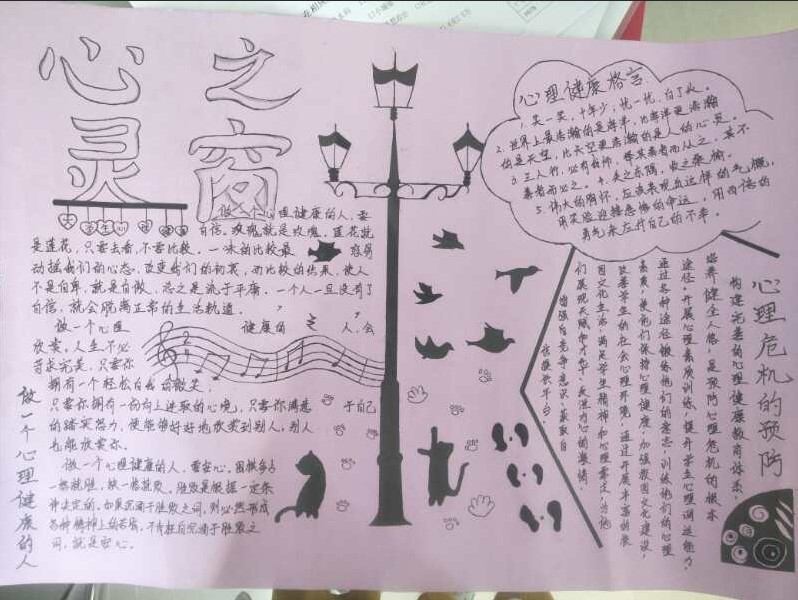 心之
灵窗
做一个心理健康的人，要
自信。玫瑰就是玫瑰，莲花就
是莲花，只要去看，不要比较。一味的比较最容易
动摇我们的心态，改变我们的初衷，而比较的结果，使人
不是自卑，就是自傲，总之是流于平庸。一个人一旦没有了
自信，就会脱离正常的生活轨道。
做一个心理健康的人，会
欣赏。人生不必
苛求完美，只需你
拥有一个轻松自我的微笑，
只需你拥有一份向上进取的心境，只需你满意于自己
的踏实努力，便能够好好地欣赏到别人，别人
也能欣赏你。
做一个心理健康的人，要安心。
一些就胜，缺一些就败。胜败是根据一定条
件决定的。如果沉湎于胜败之间，则必然形成
各种精神上的苦恼，不枉自沉湎于胜败之
间，就是安心。
做一个心理健康的人
心理健康格言
1、笑一笑，十年少；忧一忧，白了头。
2、世界上最浩瀚的是海洋，比海洋更浩瀚
的是天空，比天空更浩瀚的是人的心灵。
3、三人行，必有我师，择其善者而从之，其不
善者而改之。4、失之东隅，收之桑榆。
5、伟大的胸怀，应该表现出这样的气概，
用笑脸迎接悲惨的命运，用百倍的
勇气来应付自己的不幸。
心理危机的预防
构建完善的心理健康教育体系，
培养健全人格，是预防心理危机的根本
途径。开展心理素质训练，提升学生心理调适能力，
通过各种途径锻炼他们的意志，训练他们的心理
素质，使他们保持心理健康。加强校园文化建设，
改善学生的社会心理环境，通过开展丰富的校
园文化生活，满足学生精神和心理需要，为他
们展现天赋和才华、
增强自觉争意识、获取自
信提供平台。